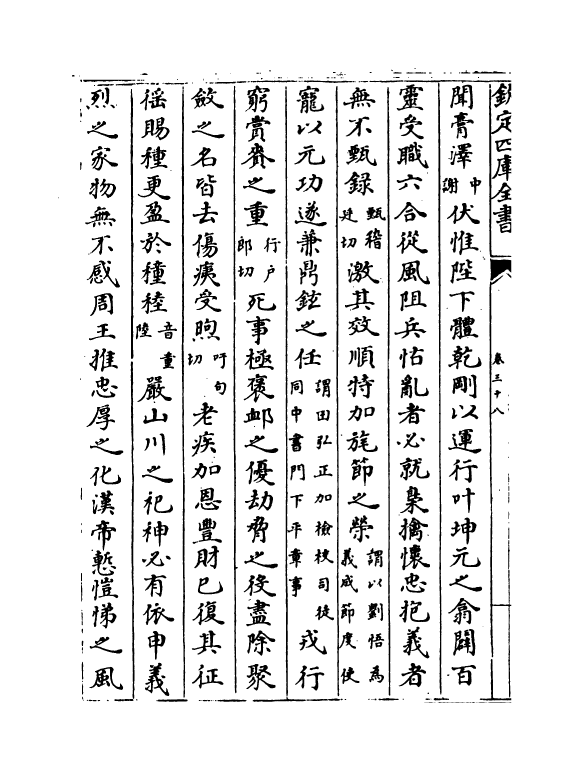 欽定四庫全書
卷三十八
聞膏澤中謝伏惟陛下體乾剛以運行叶坤元之翕闢百
靈受職六合從風阻兵怙亂者必就梟擒懷忠抱義者
無不甄錄甄稽延切激其效順特加旄節之榮謂以劉悟為義成節度使
寵以元功遂兼鼎鉉之任謂田弘正加檢校司徒同中書門下平章事戎行
窮賞賚之重行戶郎切死事極褒卹之優劫脅之役盡除聚
斂之名皆去傷痍受煦吁句切老疾加恩豐財已復其征
徭賜種更盈於穜稑音重陸嚴山川之祀神必有依申義
烈之家物無不感周王推忠厚之化漢帝慙愷悌之風